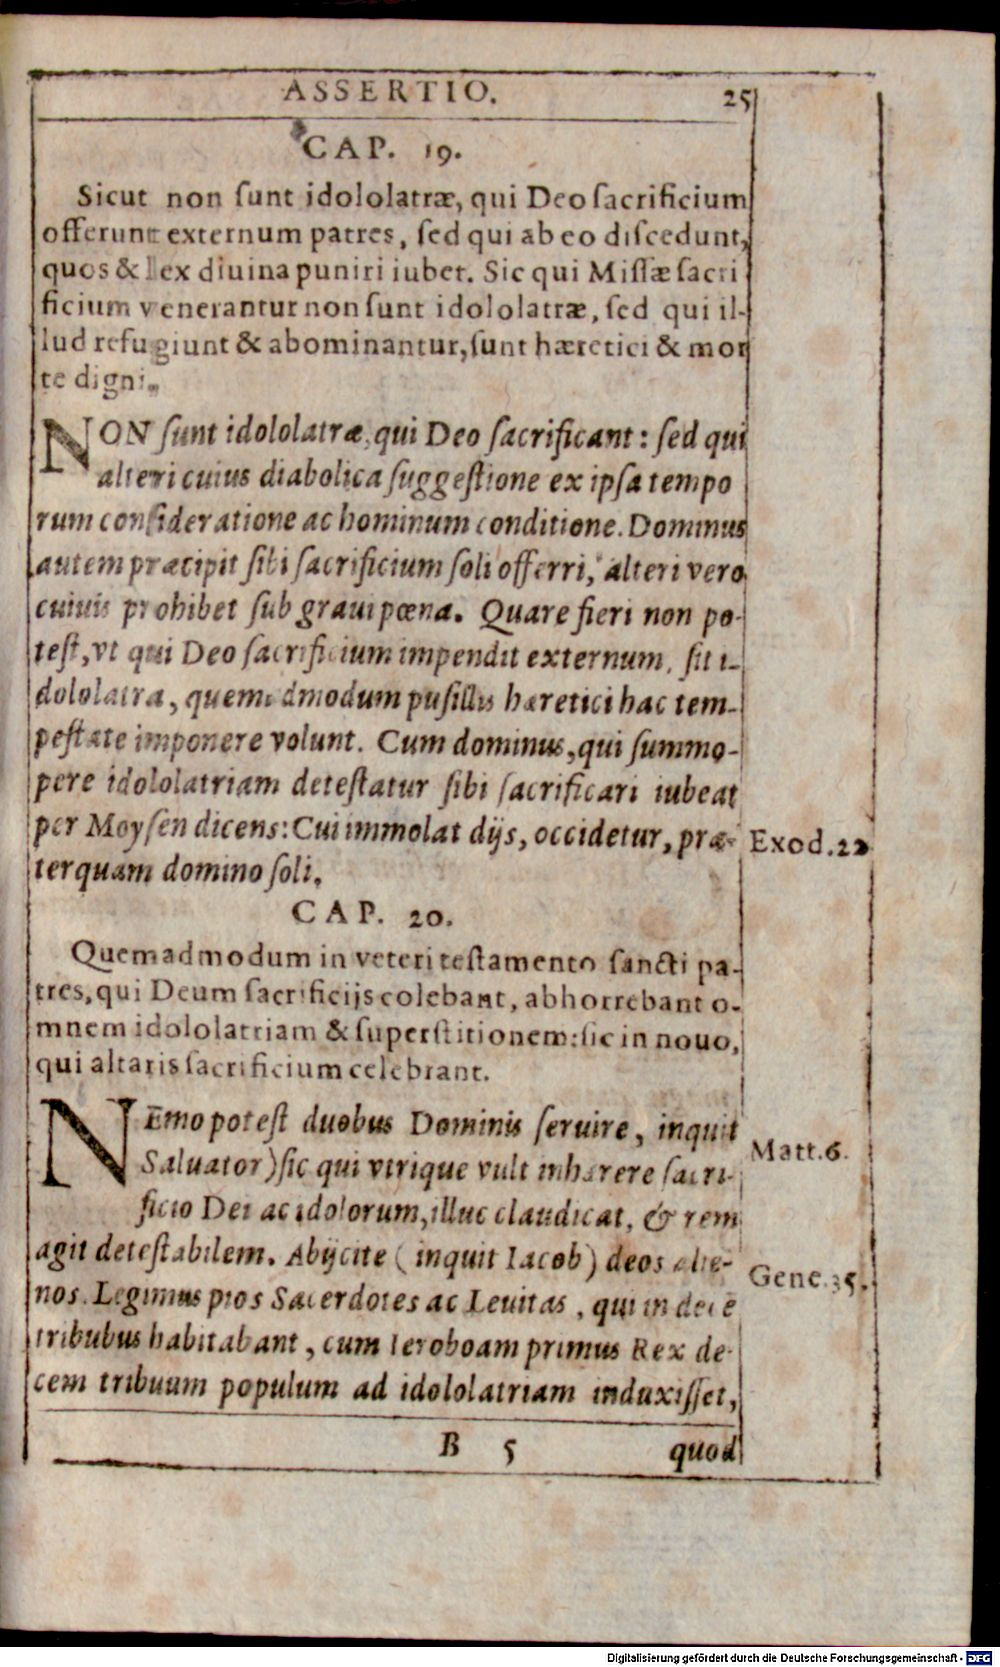 ASSERTIO. 25
CAP. 19.
Sicut non sunt idololatræ, qui Deo sacrificium
offerunt externum patres, sed qui ab eo discedunt,
quos & lex diuina puniri iubet. Sic qui Missæ sacri
ficium venerantur non sunt idololatræ, sed qui il-
lud refugiunt & abominantur, sunt hæretici & mor
te digni.
NON sunt idololatræ, qui Deo sacrificant: sed qui
alteri cuius diabolica suggestione ex ipsa tempo
rum consideratione ac hominum conditione. Dominus
autem præcipit sibi sacrificium soli offerri, alteri vero
cuiuis prohibet sub graui pœna. Quare fieri non po-
test, vt qui Deo sacrificium impendit externum, sit i-
dololatra, quemadmodum pusillis hæretici hac tem-
pestate imponere volunt. Cum dominus, qui summo-
pere idololatriam detestatur sibi sacrificari iubeat
per Moysen dicens: Cui immolat dijs, occidetur, præ- Exod. 22
terquam domino soli.
CAP. 20.
Quemadmodum in veteri testamento sancti pa-
tres, qui Deum sacrificijs colebant, abhorrebant o-
mnem idololatriam & superstitionem: sic in nouo,
qui altaris sacrificium celebrant.
NEmo potest duobus Dominis seruire, inquit
Saluator) sic qui vtrique vult inhærere sacri- Matt. 6.
ficio Dei ac idolorum, illuc claudicat, & rem
agit detestabilem. Abijcite (inquit Iacob) deos alie- Gene. 35.
nos. Legimus pios Sacerdotes ac Leuitas, qui in decē
tribubus habitabant, cum Ieroboam primus Rex de-
cem tribuum populum ad idololatriam induxisset,
B 5 quod
Digitalisierung gefördert durch die Deutsche Forschungsgemeinschaft - DFG